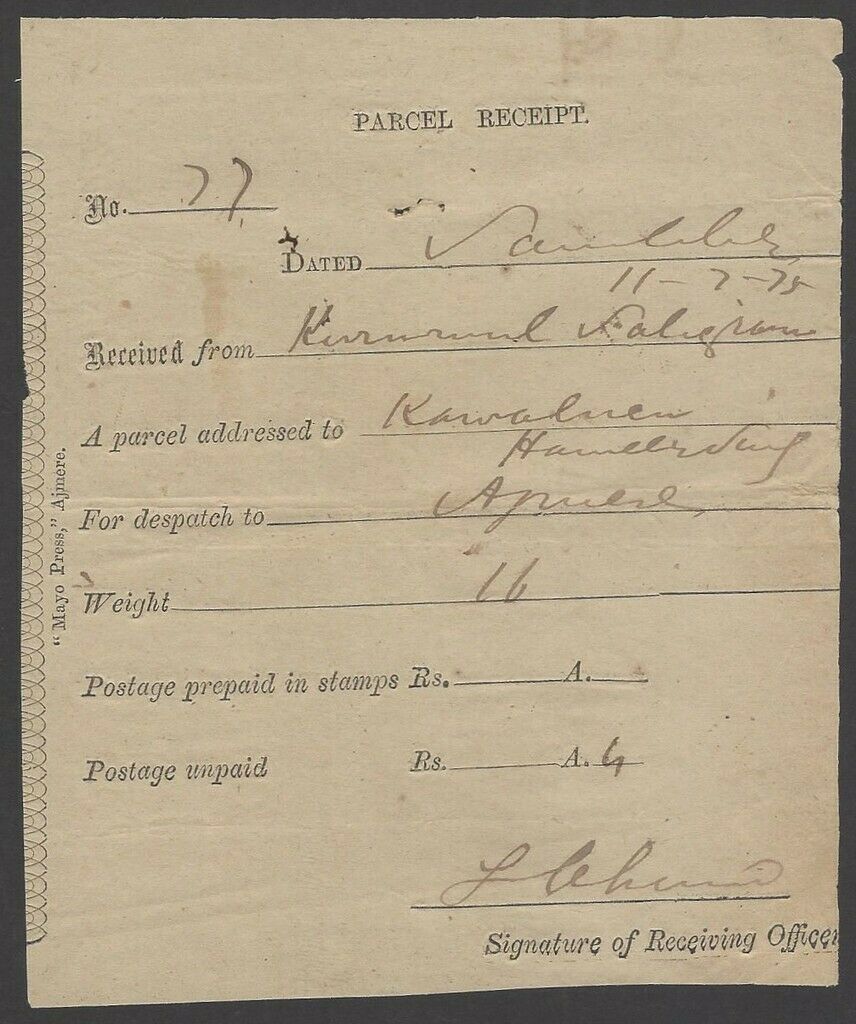 PARCEL RECEIPT.
No. 77
DATED
11-7-75
Received from
A parcel addressed to
For despatch to Ajmere
Weight 16
Postage prepaid in stamps Rs. A.
Postage unpaid Rs. A. 4
Signature of Receiving Officer
"Mayo Press," Ajmere.